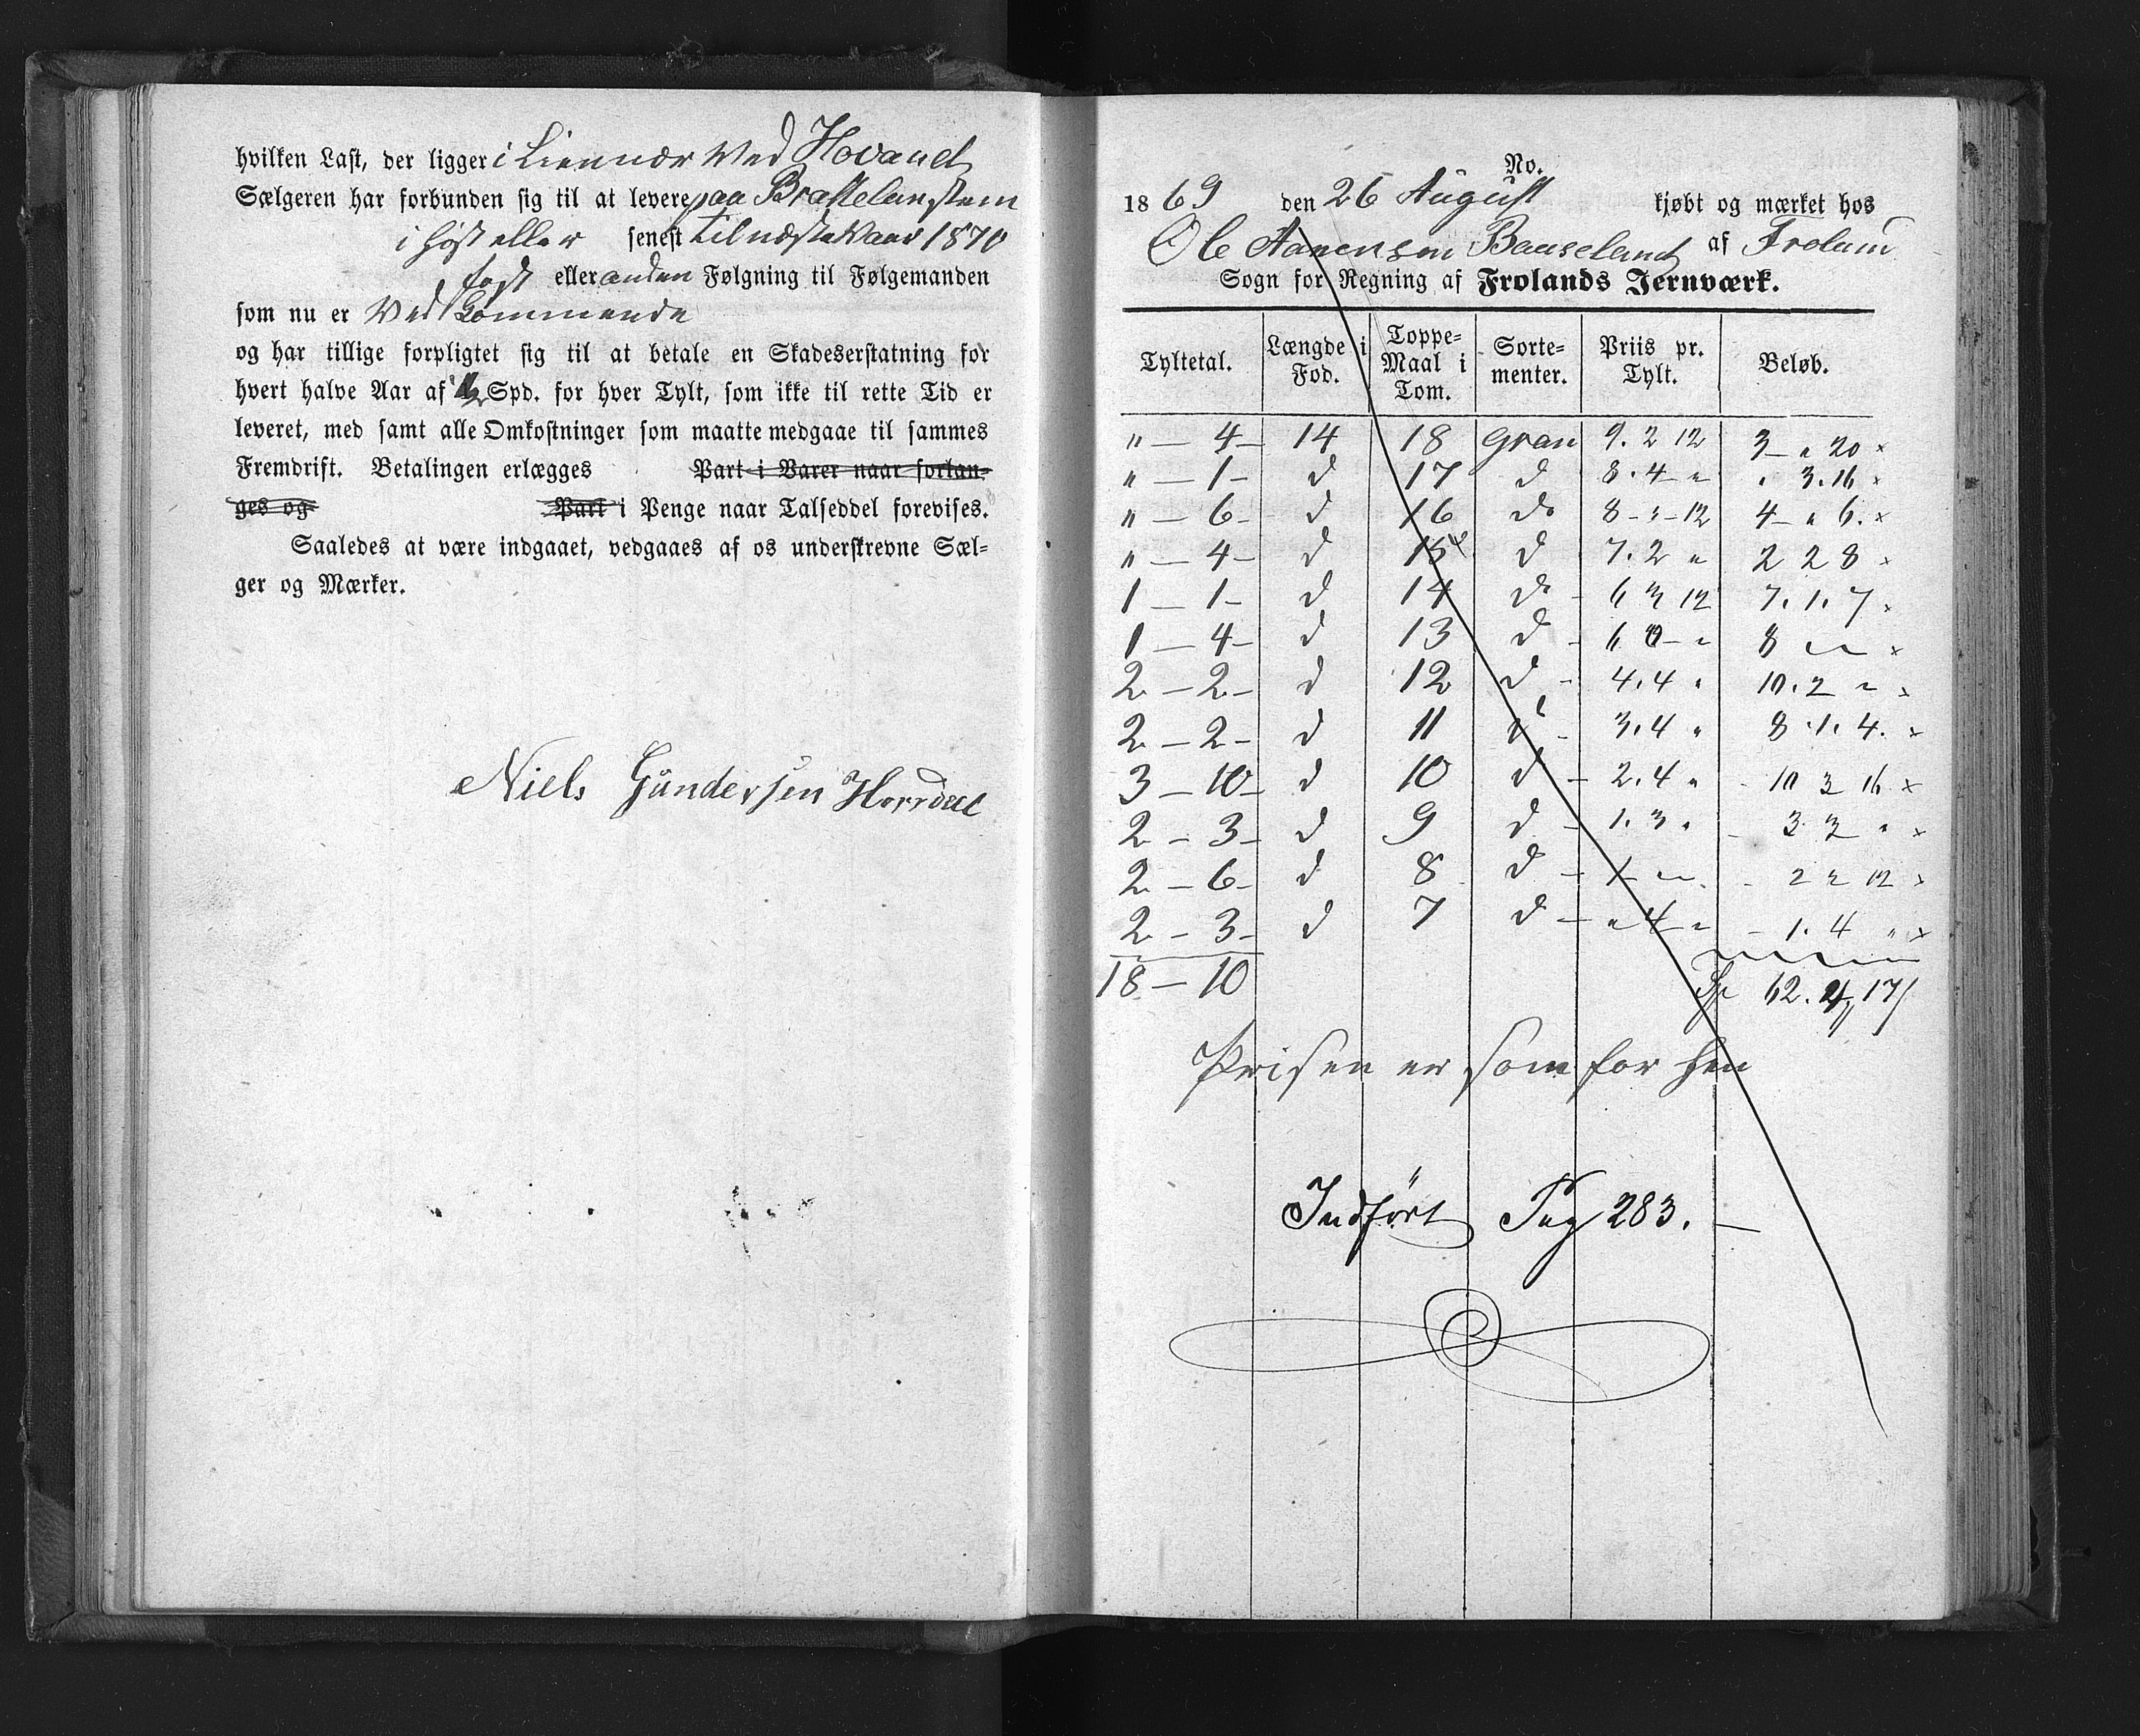 hvilken Last, der ligger i Liennær Ved Hovand
Sælgeren har forbunden sig til at levere paa Brastelanstem
i høst eller senest til næste Vaar 1870
først eller anden Følgning til Følgemanden
som nu er Ved Kommende
og har tillige forpligtet sig til at betale en Skadeserstatning for
hvert halve Aar af 1/2 Spd. for hver Tylt, som ikke til rette Tid er
leveret, med samt alle Omkostninger som maatte medgaae til sammes
Fremdrift. Betalingen erlægges Part i Varer naar forlan-
ges og Part i Penge naar Talseddel forevises.
Saaledes at være indgaaet, vedgaaes af os underskrevne Sæl-
ger og Mærker.
Niels Gundersen Horrdal
No.
1869 den 26 August kjøbt og mærket hos
Ole Aanensen Bauseland af Frolund
Sogn for Regning af Frolands Jernværk.
Tyltetal. Længde i Fod. Toppe-Maal i Tom. Sorte-menter. Priis pr. Tylt. Beløb.
" — 4 — 14 18 Gran 9. 2 12 3 — " 20 ×
" — 1 — d 17 d 8. 4 — " " 3. 16 ×
" — 6 — d 16 do 8 - " - 12 4 — " 6. ×
" — 4 — d 15 d 7. 2 " 2 2 8 ×
1 — 1 — d 14 do - 6 3 12 7. 1. 7 ×
1 — 4 — d 13 d - 6 0 - " 8 " " ×
2 — 2 — d 12 d - 4. 4 " 10. 2 " ×
2 — 2 — d 11 d - 3. 4 " 8. 1. 4. ×
3 — 10 — d 10 d - 2. 4 " - 10 3 16 ×
2 — 3 — d 9 d - 1. 3 " - 3. 3 " ×
2 — 6 — d 8 d - 1 - " " - 2 2 12 ×
2 — 3 — d 7 d - " 4 " - 1. 4 " ×
18 — 10 Sp 62. 4 " 17
Prisen er som for hen
Indført Pag 283. —